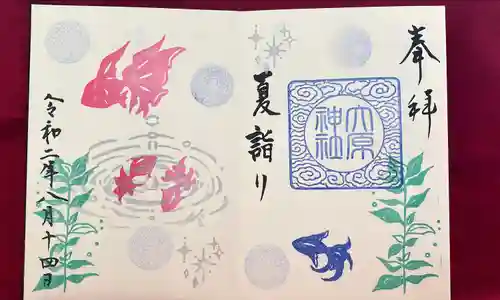 奉拝
六原
神社
夏詣り
令和二年八月十四日